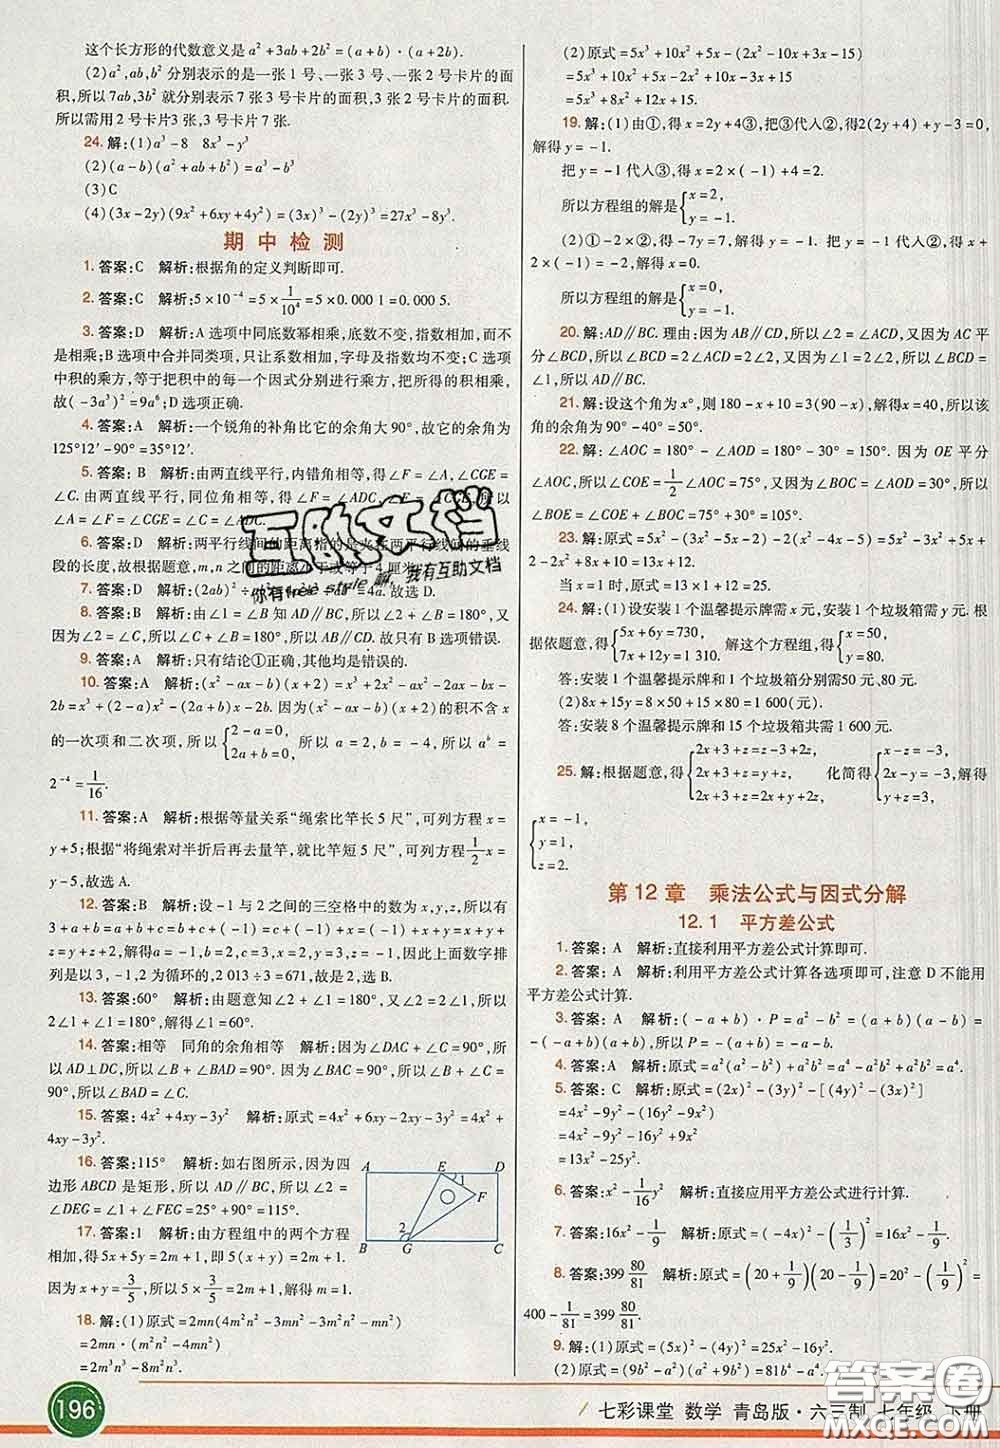 这个长方形的代数意义是a²+3ab+2b²=(a+b)·(a+2b).
(2)a²,ab,b²分别表示的是一张1号、一张3号、一张2号卡片的面
积,所以7ab,3b²就分别表示7张3号卡片的面积,3张2号卡片的面积.
所以需用2号卡片3张,3号卡片7张.
24.解:(1)a³-8 8x³-y³
(2)(a-b)(a²+ab+b²)=a³-b³
(3)C
(4)(3x-2y)(9x²+6xy+4y²)=(3x)³-(2y)³=27x³-8y³.
期中检测
1.答案:C 解析:根据角的定义判断即可.
2.答案:C 解析:5×10⁻⁴=5×1/10⁴=5×0.000 1=0.000 5.
3.答案:D 解析:A选项中同底数幂相乘,底数不变,指数相加,而不
是相乘;B选项中合并同类项,只让系数相加,字母及指数均不变;C选
项中积的乘方,等于把积中的每一个因式分别进行乘方,把所得的积相乘,
故(-3a³)²=9a⁶;D选项正确.
4.答案:A 解析:一个锐角的补角比它的余角大90°,故它的余角为
125°12′-90°=35°12′.
5.答案:B 解析:由两直线平行,内错角相等,得∠F=∠A,∠CGE=
∠C.由两直线平行,同位角相等,得∠F=∠ADC,
∠A=∠C=∠F=∠CGE=∠ADC.
6.答案:B 解析:两平行线间的距离指的是夹在两平行线间的垂线
段的长度,故根据题意,m,n之间的距离小于或等于
7.答案:D 解析:(2ab)²÷ =4a.故选D.
8.答案:B 解析:由∠1=∠B知AD∥BC,所以∠2+∠B=180°,又
因为∠2=∠C,所以∠C+∠B=180°,所以AB∥CD.故只有B选项错误.
9.答案:A 解析:只有结论①正确,其他均是错误的.
10.答案:A 解析:(x²-ax-b)(x+2)=x³+2x²-ax²-2ax-bx-
2b=x³+(2-a)x²-(2a+b)x-2b.因为(x²-ax-b)(x+2)的积不含x
的一次项和二次项,所以{2-a=0, 2a+b=0, 所以a=2,b=-4,所以a^b=
2⁻⁴=1/16.
11.答案:A 解析:根据等量关系“绳索比竿长5尺”,可列方程x=
y+5;根据“将绳索对半折后再去量竿,就比竿短5尺”,可列方程1/2x=
y-5,故选A.
12.答案:B 解析:设-1与2之间的三空格中的数为x,y,z,所以
3+a+b=a+b+c=b+c+(-1)=c+(-1)+x=-1+x+y=x+y+
z=y+z+2,解得a=-1,b=2,c=3,x=2,y=3,z=-1.因此上面数字排
列是以3,-1,2为循环的,2 013÷3=671,故是2,选B.
13.答案:60° 解析:由题意知∠2+∠1=180°,又∠2=2∠1,所以
2∠1+∠1=180°,解得∠1=60°.
14.答案:相等 同角的余角相等 解析:因为∠DAC+∠C=90°,所
以AD⊥DC,所以∠BAD+∠B=90°.因为∠BAC=90°,所以∠B+∠C=
90°,所以∠BAD=∠C.
15.答案:4x²+4xy-3y² 解析:原式=4x²+6xy-2xy-3y²=4x²+
4xy-3y².
16.答案:115° 解析:如右图所示,因为四
边形ABCD是矩形,所以AD∥BC,所以∠2=
∠DEG=∠1+∠FEG=25°+90°=115°.
A E D
1
F
2
B G C
17.答案:1 解析:由方程组中的两个方程
相加,得5x+5y=2m+1,即5(x+y)=2m+1.
因为x+y=3/5,所以5×3/5=2m+1,所以m=1.
18.解:(1)原式=2mn(4m²n²-3mn-4mn-3m²n²)
=2mn·(m²n²-4mn)
=2m³n³-8m²n².
(2)原式=5x³+10x²+5x-(2x²-10x+3x-15)
=5x³+10x²+5x-2x²+10x-3x+15
=5x³+8x²+12x+15.
19.解:(1)由①,得x=2y+4③,把③代入②,得2(2y+4)+y-3=0,
解得y=-1.
把y=-1代入③,得x=2×(-1)+4=2.
所以方程组的解是{x=2, y=-1.
(2)①-2×②,得-7y=7,解得y=-1.把y=-1代入②,得x+
2×(-1)=-2,解得x=0.
所以方程组的解是{x=0, y=-1.
20.解:AD∥BC.理由:因为AB∥CD,所以∠2=∠ACD,又因为AC平
分∠BCD,所以∠BCD=2∠ACD=2∠2,又因为∠1=2∠2,所以∠BCD=
∠1,所以AD∥BC.
21.解:设这个角为x°,则180-x+10=3(90-x),解得x=40,所以该
角的余角为90°-40°=50°.
22.解:∠AOC=180°-∠AOD=180°-30°=150°.因为OE平分
∠AOC,所以∠COE=1/2∠AOC=75°,又因为∠BOC=∠AOD=30°,所以
∠BOE=∠BOC+∠COE=75°+30°=105°.
23.解:原式=5x²-(2x²-5x)-2(x²-4x-6)=5x²-2x²+5x-2x²+
8x+12=x²+13x+12.
当x=1时,原式=13×1+12=25.
24.解:(1)设安装1个温馨提示牌需x元,安装1个垃圾箱需y元.根
据依题意,得{5x+6y=730, 7x+12y=1 310. 解这个方程组,得{x=50, y=80.
答:安装1个温馨提示牌和1个垃圾箱分别需50元、80元.
(2)8x+15y=8×50+15×80=1 600(元).
答:安装8个温馨提示牌和15个垃圾箱共需1 600元.
25.解:根据题意,得{2x+3+z=-3+2z, 2x+3+z=x+y+z, 2x+3+z=2x+y+2z, 化简得{x-z=-3, 2x-y=-3, y+z=3, 解得
{x=-1, y=1, z=2.
第12章 乘法公式与因式分解
12.1 平方差公式
1.答案:A 解析:直接利用平方差公式计算即可.
2.答案:A 解析:利用平方差公式计算各选项即可,注意D不能用
平方差公式计算.
3.答案:A 解析:(-a+b)·P=a²-b²=(a+b)(a-b)=
-(-a+b)(a+b),所以P=-(a+b)=-a-b.
4.答案:A 解析:原式=a²(a²-b²)+a²b²=a⁴-a²b²+a²b²=a⁴.
5.答案:C 解析:原式=(2x)²-(3y)²-[(4y)²-(3x)²]
=4x²-9y²-(16y²-9x²)
=4x²-9y²-16y²+9x²
=13x²-25y².
6.答案:x²-1/16y² 解析:直接应用平方差公式进行计算.
7.答案:16x²-1/9 解析:原式=(-4x)²-(1/3)²=16x²-1/9.
8.答案:399 80/81 解析:原式=(20+1/9)(20-1/9)=20²-(1/9)²=
400-1/81=399 80/81.
9.解:(1)原式=(5x)²-(4y)²=25x²-16y².
(2)原式=(9b²-a²)(a²+9b²)=81b⁴-a⁴.
互助文档
我有互助文档
196
七彩课堂 数学 青岛版·六三制 七年级 下册
答案圈
MXQE.COM